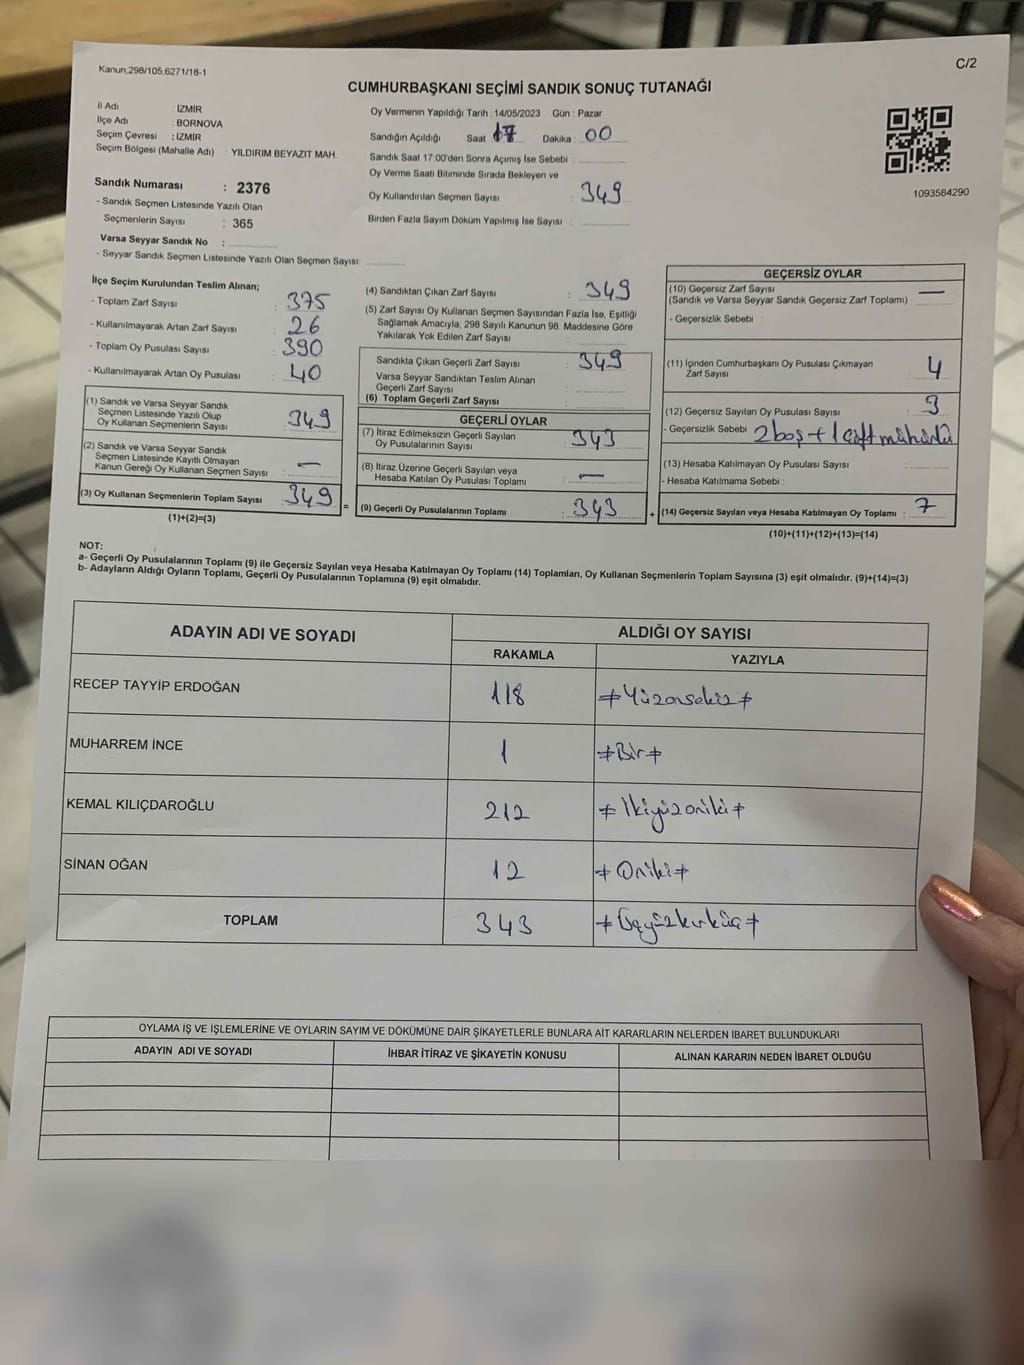 Kanun.298/105,6271/18-1
C/2
CUMHURBAŞKANI SEÇİMİ SANDIK SONUÇ TUTANAĞI
İl Adı : İZMİR
İlçe Adı : BORNOVA
Seçim Çevresi : İZMİR
Seçim Bölgesi (Mahalle Adı) : YILDIRIM BEYAZIT MAH.
Sandık Numarası : 2376
- Sandık Seçmen Listesinde Yazılı Olan
Seçmenlerin Sayısı : 365
Varsa Seyyar Sandık No :
- Seyyar Sandık Seçmen Listesinde Yazılı Olan Seçmen Sayısı:
Oy Vermenin Yapıldığı Tarih : 14/05/2023 Gün : Pazar
Sandığın Açıldığı Saat : 17 Dakika : 00
Sandık Saat 17:00'den Sonra Açımış İse Sebebi :
Oy Verme Saati Bitiminde Sırada Bekleyen ve
Oy Kullandırılan Seçmen Sayısı : 349
Birden Fazla Sayım Döküm Yapılmış İse Sayısı :
1093584290
İlçe Seçim Kurulundan Teslim Alınan;
- Toplam Zarf Sayısı : 375
- Kullanılmayarak Artan Zarf Sayısı : 26
- Toplam Oy Pusulası Sayısı : 390
- Kullanılmayarak Artan Oy Pusulası : 40
(1) Sandık ve Varsa Seyyar Sandık
Seçmen Listesinde Yazılı Olup
Oy Kullanan Seçmenlerin Sayısı : 349
(2) Sandık ve Varsa Seyyar Sandık
Seçmen Listesinde Kayıtlı Olmayan
Kanun Gereği Oy Kullanan Seçmen Sayısı : —
(3) Oy Kullanan Seçmenlerin Toplam Sayısı : 349
(1)+(2)=(3)
=
(4) Sandıktan Çıkan Zarf Sayısı : 349
(5) Zarf Sayısı Oy Kullanan Seçmen Sayısından Fazla İse, Eşitliği
Sağlamak Amacıyla, 298 Sayılı Kanunun 98. Maddesine Göre
Yakılarak Yok Edilen Zarf Sayısı :
Sandıkta Çıkan Geçerli Zarf Sayısı : 349
Varsa Seyyar Sandıktan Teslim Alınan
Geçerli Zarf Sayısı :
(6) Toplam Geçerli Zarf Sayısı :
GEÇERLİ OYLAR
(7) İtiraz Edilmeksizin Geçerli Sayılan
Oy Pusulalarının Sayısı : 343
(8) İtiraz Üzerine Geçerli Sayılan veya
Hesaba Katılan Oy Pusulası Toplamı : —
(9) Geçerli Oy Pusulalarının Toplamı : 343
+
GEÇERSİZ OYLAR
(10) Geçersiz Zarf Sayısı —
(Sandık ve Varsa Seyyar Sandık Geçersiz Zarf Toplamı) :
- Geçersizlik Sebebi :
(11) İçinden Cumhurbaşkanı Oy Pusulası Çıkmayan
Zarf Sayısı : 4
(12) Geçersiz Sayılan Oy Pusulası Sayısı : 3
- Geçersizlik Sebebi 2 boş + 1 çift mühürlü
(13) Hesaba Katılmayan Oy Pusulası Sayısı :
- Hesaba Katılmama Sebebi :
(14) Geçersiz Sayılan veya Hesaba Katılmayan Oy Toplamı : 7
(10)+(11)+(12)+(13)=(14)
NOT:
a- Geçerli Oy Pusulalarının Toplamı (9) ile Geçersiz Sayılan veya Hesaba Katılmayan Oy Toplamı (14) Toplamları, Oy Kullanan Seçmenlerin Toplam Sayısına (3) eşit olmalıdır. (9)+(14)=(3)
b- Adayların Aldığı Oyların Toplamı, Geçerli Oy Pusulalarının Toplamına (9) eşit olmalıdır.
ADAYIN ADI VE SOYADI
ALDIĞI OY SAYISI
RAKAMLA YAZIYLA
RECEP TAYYİP ERDOĞAN 118 ≠Yüzonsekiz≠
MUHARREM İNCE 1 ≠Bir≠
KEMAL KILIÇDAROĞLU 212 ≠İkiyüzoniki≠
SİNAN OĞAN 12 ≠Oniki≠
TOPLAM 343 ≠Üçyüzkırküç≠
OYLAMA İŞ VE İŞLEMLERİNE VE OYLARIN SAYIM VE DÖKÜMÜNE DAİR ŞİKAYETLERLE BUNLARA AİT KARARLARIN NELERDEN İBARET BULUNDUKLARI
ADAYIN ADI VE SOYADI İHBAR İTİRAZ VE ŞİKAYETİN KONUSU ALINAN KARARIN NEDEN İBARET OLDUĞU